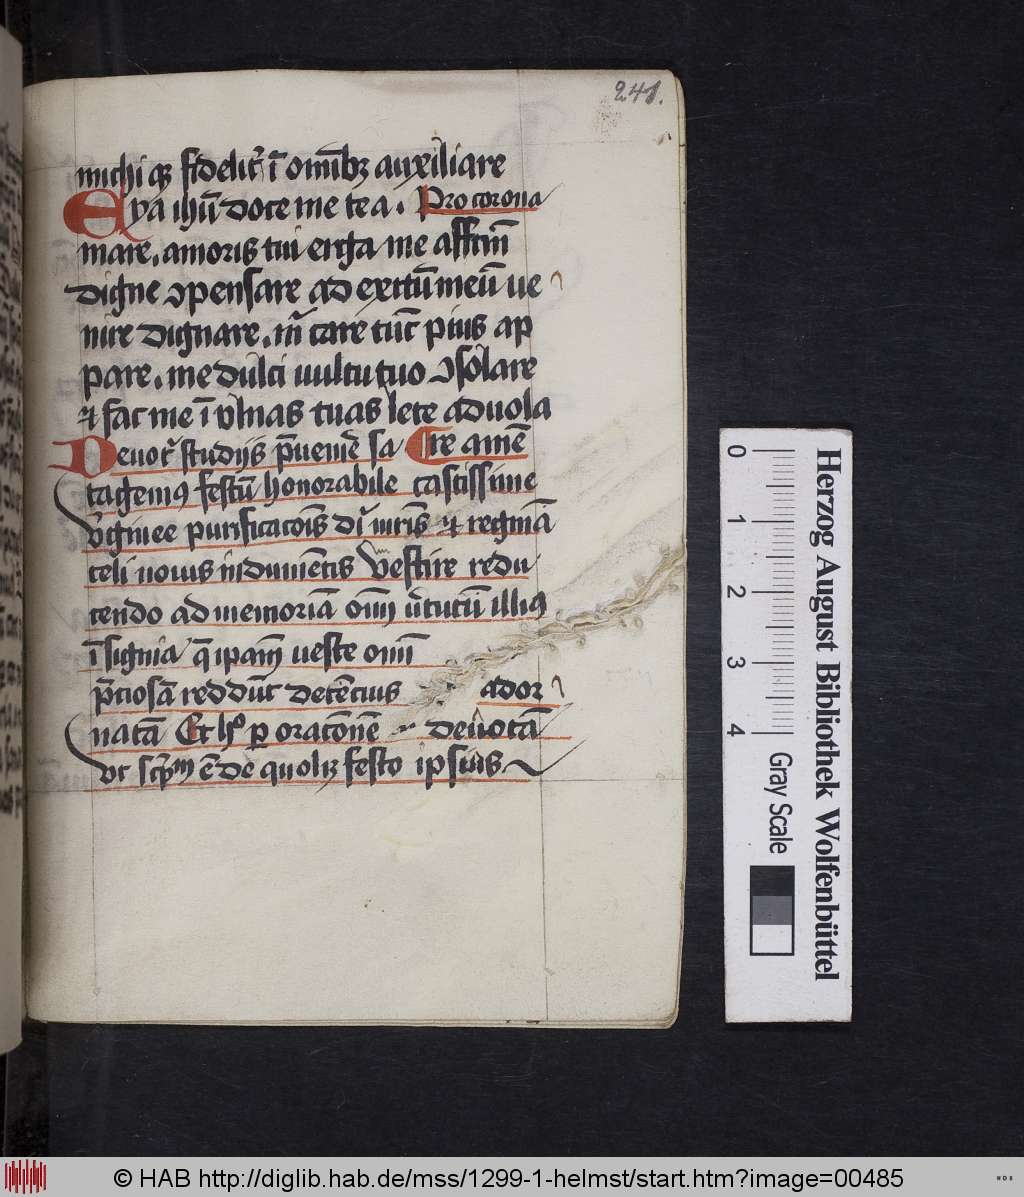 241.
michi qꝫ fidelit᷑ ī omībꝫ auxiliare
Eya ihū doce me te a . Pro corona
mare . amoris tui erga me affcm̄
digne ꝯpensare ad exitū meū ue
nire dignare . in care tūc pius ap
pare . me dulci uultu tuo ꝯsolare
⁊ fac me ī vlnas tuas lete aduola
Deuot᷑ studijs p̄uenie sa Cre amē
tagemꝰ festū honorabile castissime
v̓ginee purificacōis di mr̄is ⁊ reginā
celi nouis indumētis vestire redu
cendo ad memoriā om̄ v̓tutū illiꝰ
īsignia q̄ ipam̄ ueste om̄
p̄ciosā reddūt decēcius ador
natā Et hꝰ ꝑ oracōnē deuotā
vt scp̄m ē de quolꝫ festo ipsius
Herzog August Bibliothek Wolfenbüttel
0 1 2 3 4 Gray Scale
© HAB http://diglib.hab.de/mss/1299-1-helmst/start.htm?image=00485